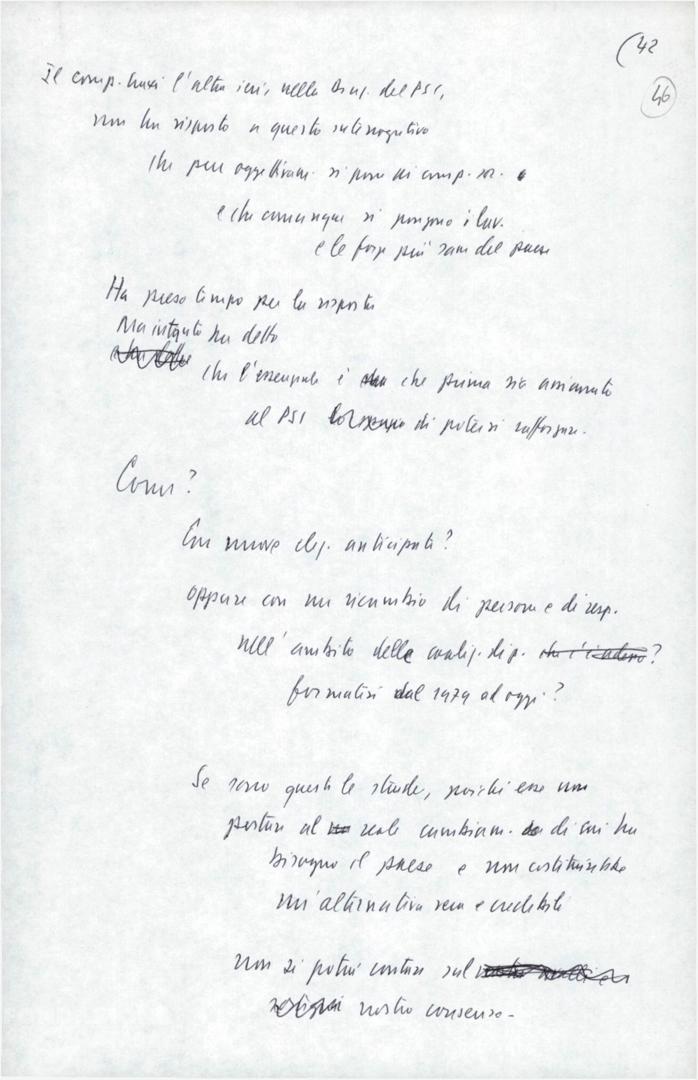 42
46
Il comp. Craxi l'altro ieri, nella Dir. del PSI,
non ha risposto a questo interrogativo
che pure oggettivam. si pone ai comp. soc.
e che comunque si pongono i lav.
e le forze più sane del paese
Ha preso tempo per la risposta
Ma intanto ha detto
che l'essenziale è che prima sia assicurato
al PSI di potersi rafforzare.
Come?
Con nuove elez. anticipate?
oppure con un ricambio di persone e di resp.
nell'ambito delle coaliz. dip. ?
formatesi dal 1979 ad oggi?
Se sono queste le strade, poiché esse non
portano al reale cambiam. di cui ha
bisogno il paese e non costituirebbe
un'alternativa vera e credibile
non si potrà contare sul
nostro consenso.